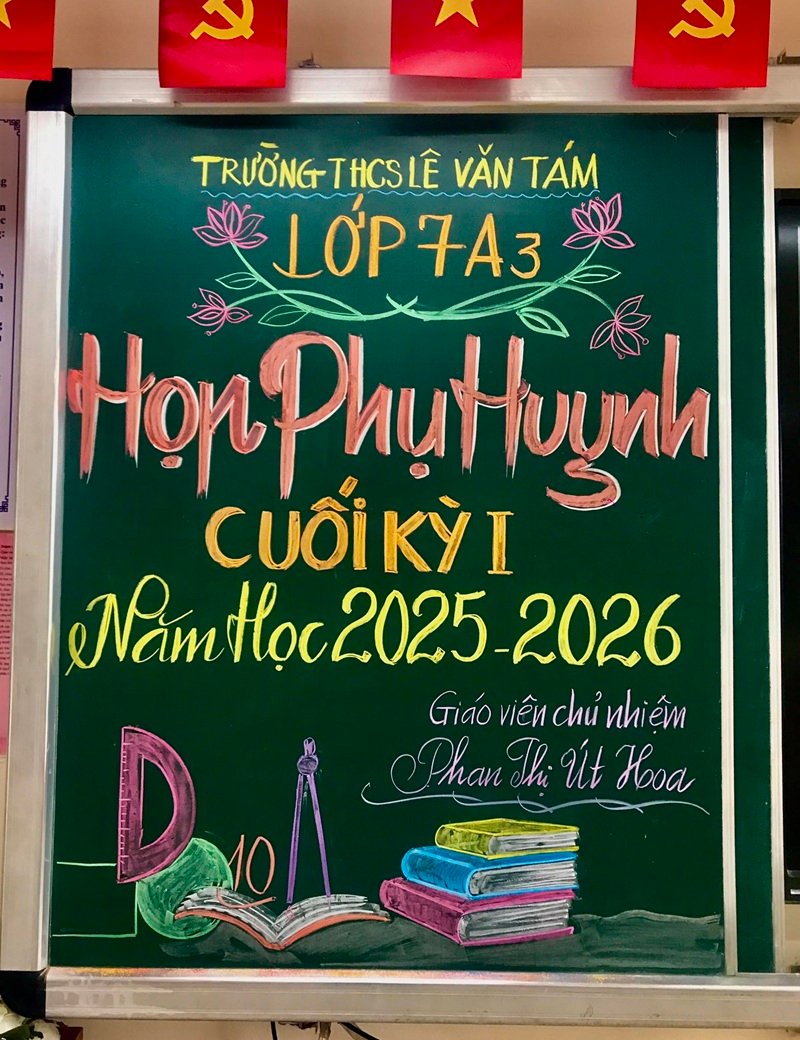 TRƯỜNG THCS LÊ VĂN TÁM
LỚP 7A3
Họp Phụ Huynh
CUỐI KỲ I
Năm Học 2025-2026
Giáo viên chủ nhiệm
Phan Thị Út Hoa
10